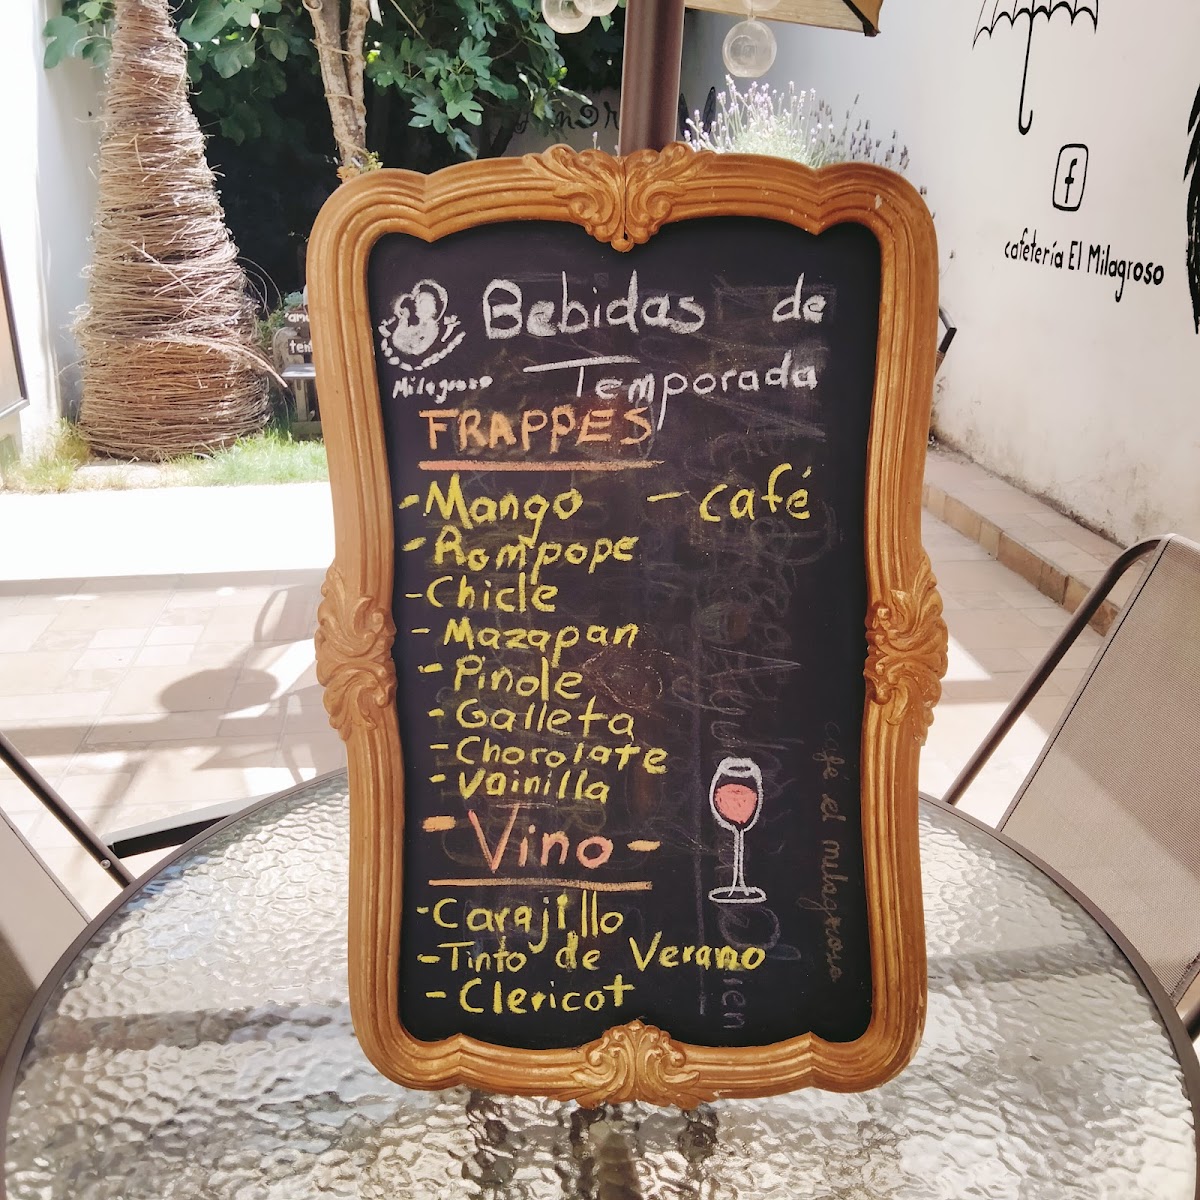 Bebidas de
Temporada
Milagroso
FRAPPES
-Mango - café
-Rompope
-Chicle
-Mazapan
-Pinole
-Galleta
-Chorolate
-Vainilla
-Vino-
-Carajillo
-Tinto de Verano
-Clericot
café el milagroso
f
cafetería El Milagroso